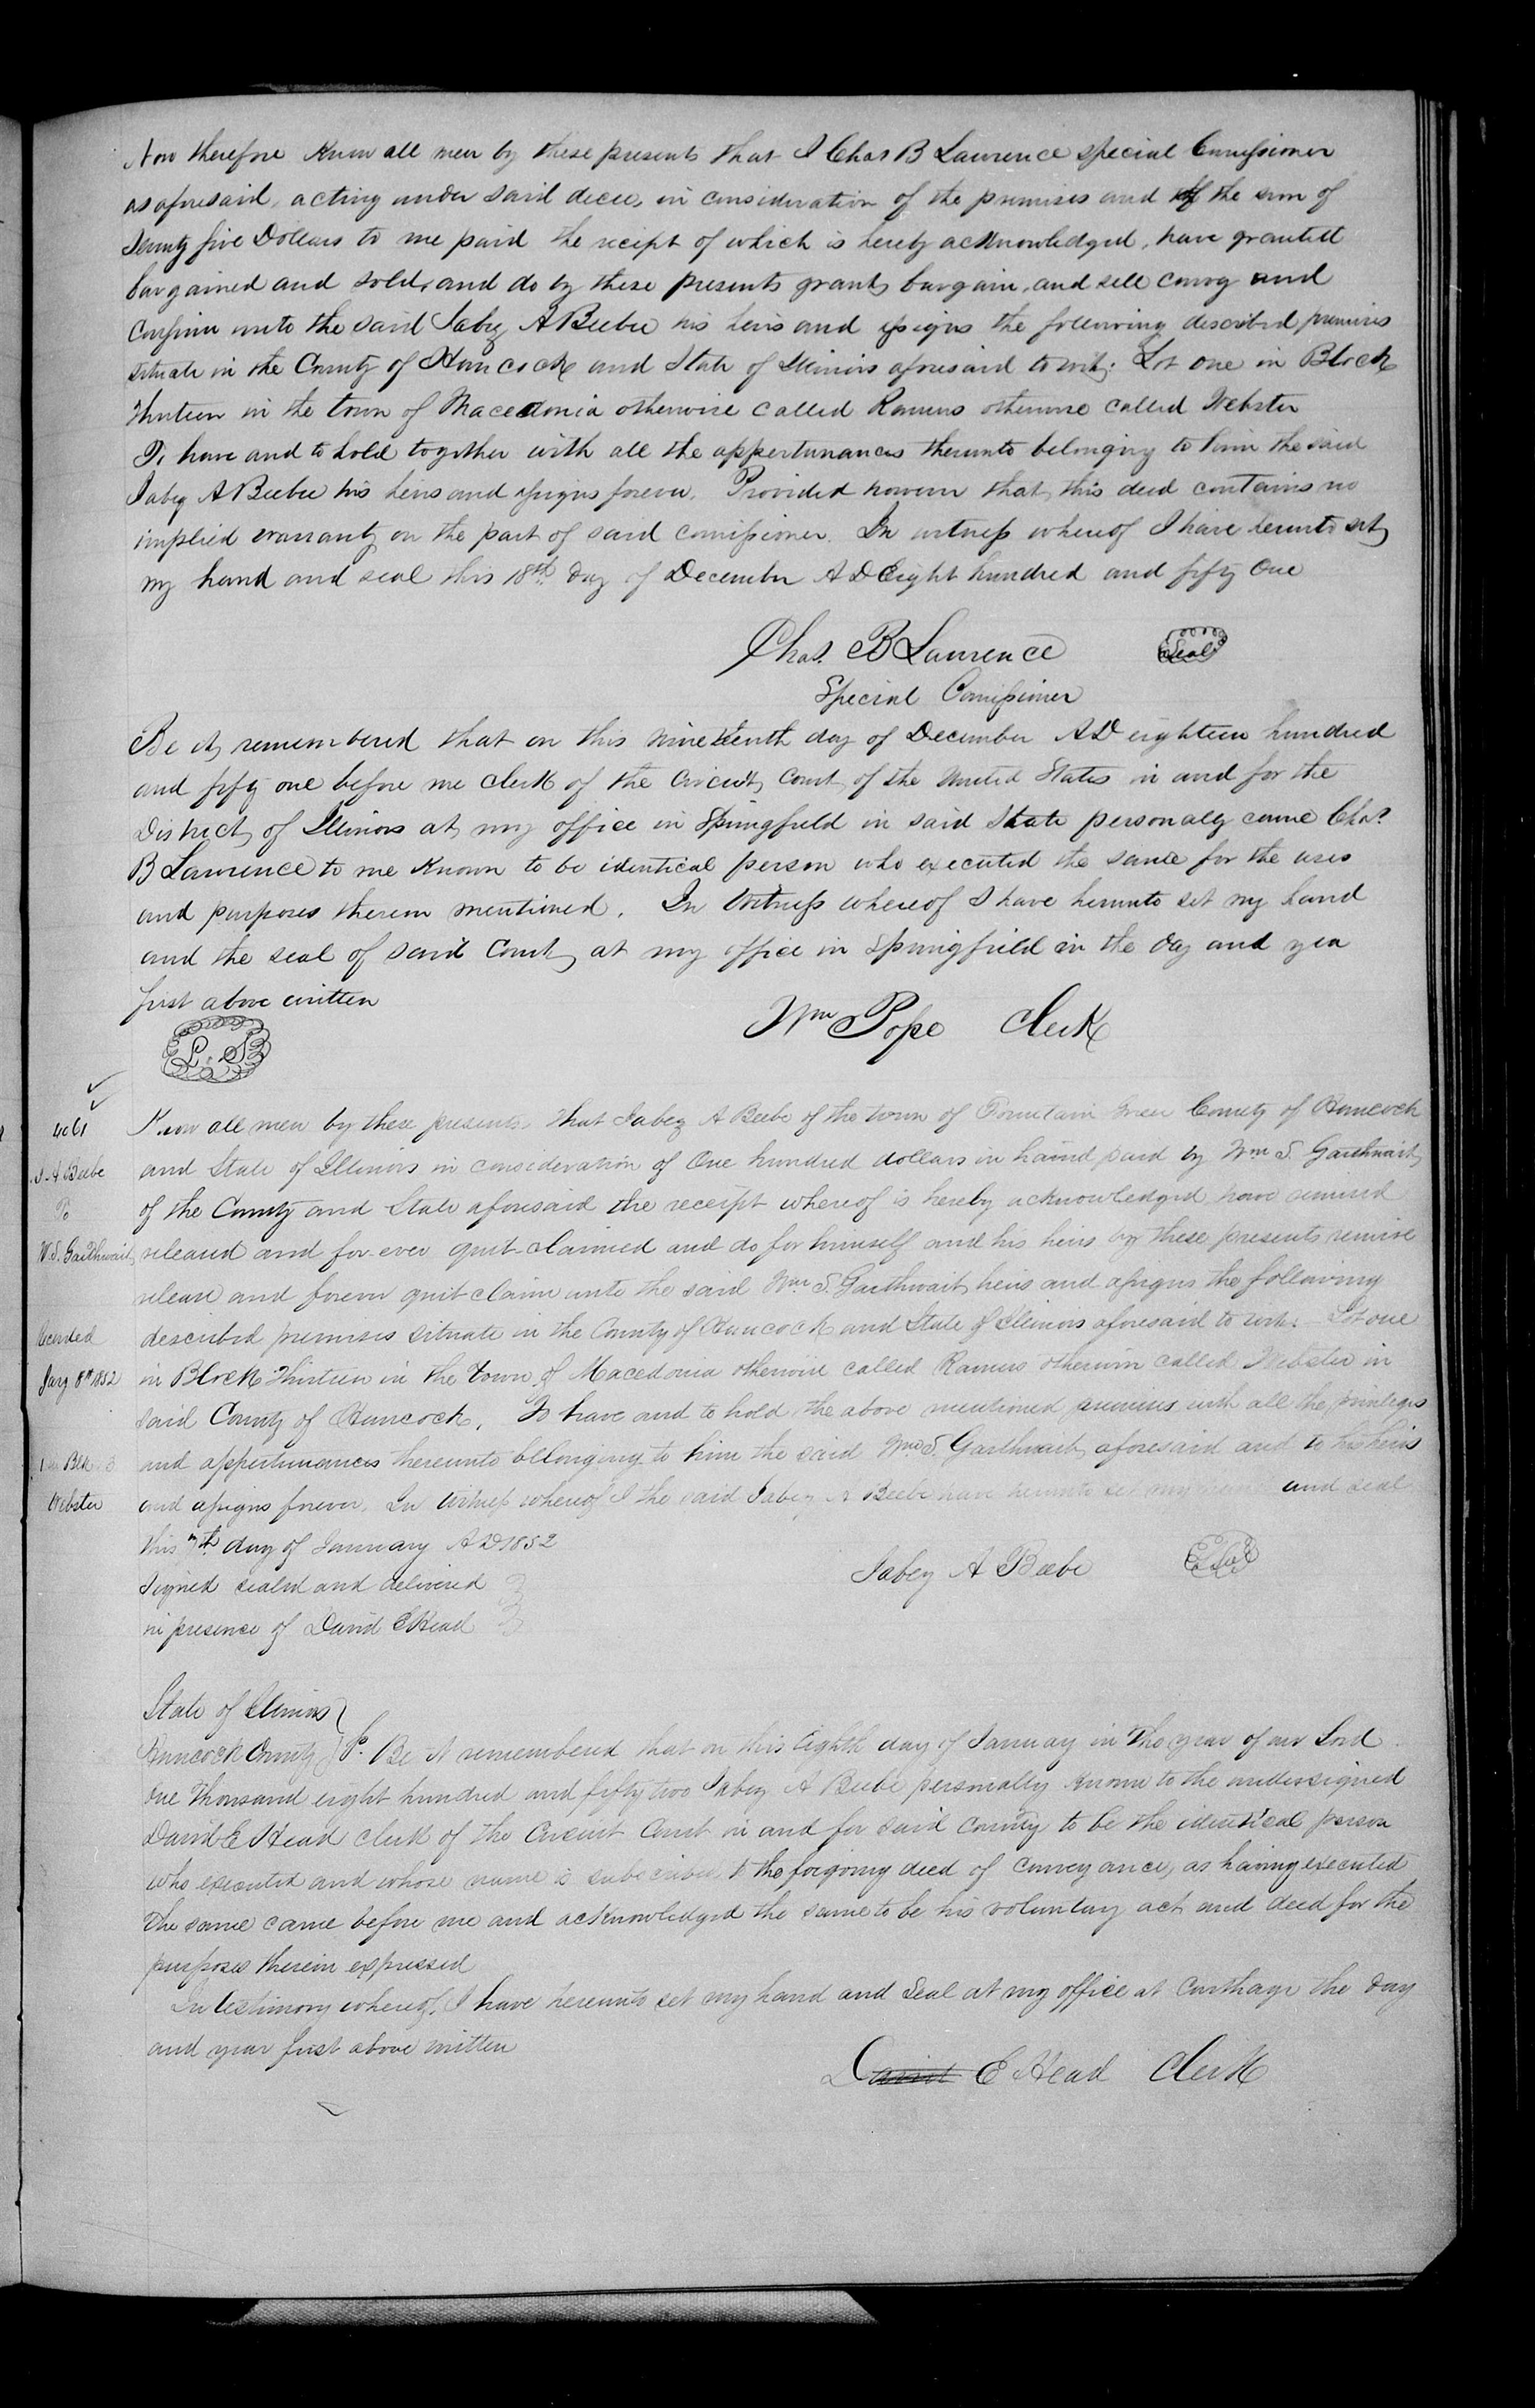 Now therefore Know all men by these presents that I Chas B Lawrence special Comissioner
as aforesaid, acting under said decree, in consideration of the premises and of the sum of
Seventy five Dollars to me paid the receipt of which is hereby acknowledged, have granted
bargained and sold, and do by these presents grant, bargain, and sell convey and
Confirm unto the said Jabez A Beebee his heirs and assigns the following described premises
situate in the County of Hancock and State of Illinois aforesaid to wit: Lot one in Block
Thirteen in the town of Macedonia otherwise called Ramus otherwise called Webster
To have and to hold together with all the appertunances thereunto belonging to him the said
Jabez A Beebee his heirs and assigns forever. Provided however that this deed contains no
implied warranty on the part of said comissioner. In witness whereof I have hereunto set
my hand and seal this 18th day of December A D Eight hundred and fifty One
Chas. B Lawrence Seal
Special Comissioner
Be it remembered that on this nineteenth day of December A D eighteen hundred
and fifty one before me clerk of the Circuit Court of the United States in and for the
District of Illinois at my office in Springfield in said State personally came Chas
B Lawrence to me known to be identical person who executed the same for the uses
and purposes therein mentioned. In Witness whereof I have hereunto set my hand
and the seal of said Court at my office in Springfield in the day and year
first above written
Wm Pope Clerk
L. S
4061
J. A Beebe
To
W. S. Garthwait
Recorded
Jany 8th 1852
Blk
Webster
Know all men by these presents that Jabez A Beebe of the town of Fountain Green County of Hancock
and State of Illinois in consideration of One hundred dollars in haind paid by Wm S. Garthwait
of the County and State aforesaid the receipt whereof is hereby acknowledged have remised
released and for-ever quit-claimed and do for himself and his heirs by these presents remise
release and forever quit claim unto the said Wm S. Garthwait heirs and assigns the following
described premises situate in the County of Hancock and State of Illinois aforesaid to wit: Lot one
in Block Thirteen in the Town of Macedonia otherwise called Ramus otherwise called Webster in
said County of Hancock. To have and to hold the above mentioned premises with all the privileges
and appertunances thereunto bllonging to him the said Wm S Garthwait aforesaid and to his heirs
and assigns forever. In witness whereof I the said Jabez A Beebe have hereunto set my hand and seal
this 7th day of January A D 1852
Signed sealed and delivered
in presence of David E Head
Jabez A Beebe Seal
State of Illinois
Hancock County Ss. Be it remembered that on this Eighth day of January in the year of our Lord
One thousand eight hundred and fifty two Jabez A Beebe personally known to the undersigned
David E Head clerk of the Circuit Court in and for said County to be the identical person
who executed and whose name is subscribed to the forgoing deed of conveyance, as having executed
the same came before me and acknowledged the same to be his voluntary act and deed for the
purposes therein expressed
In testimony whereof, I have hereunto set my hand and seal at my office at Carthage the day
and year first above written
David E Head Clerk